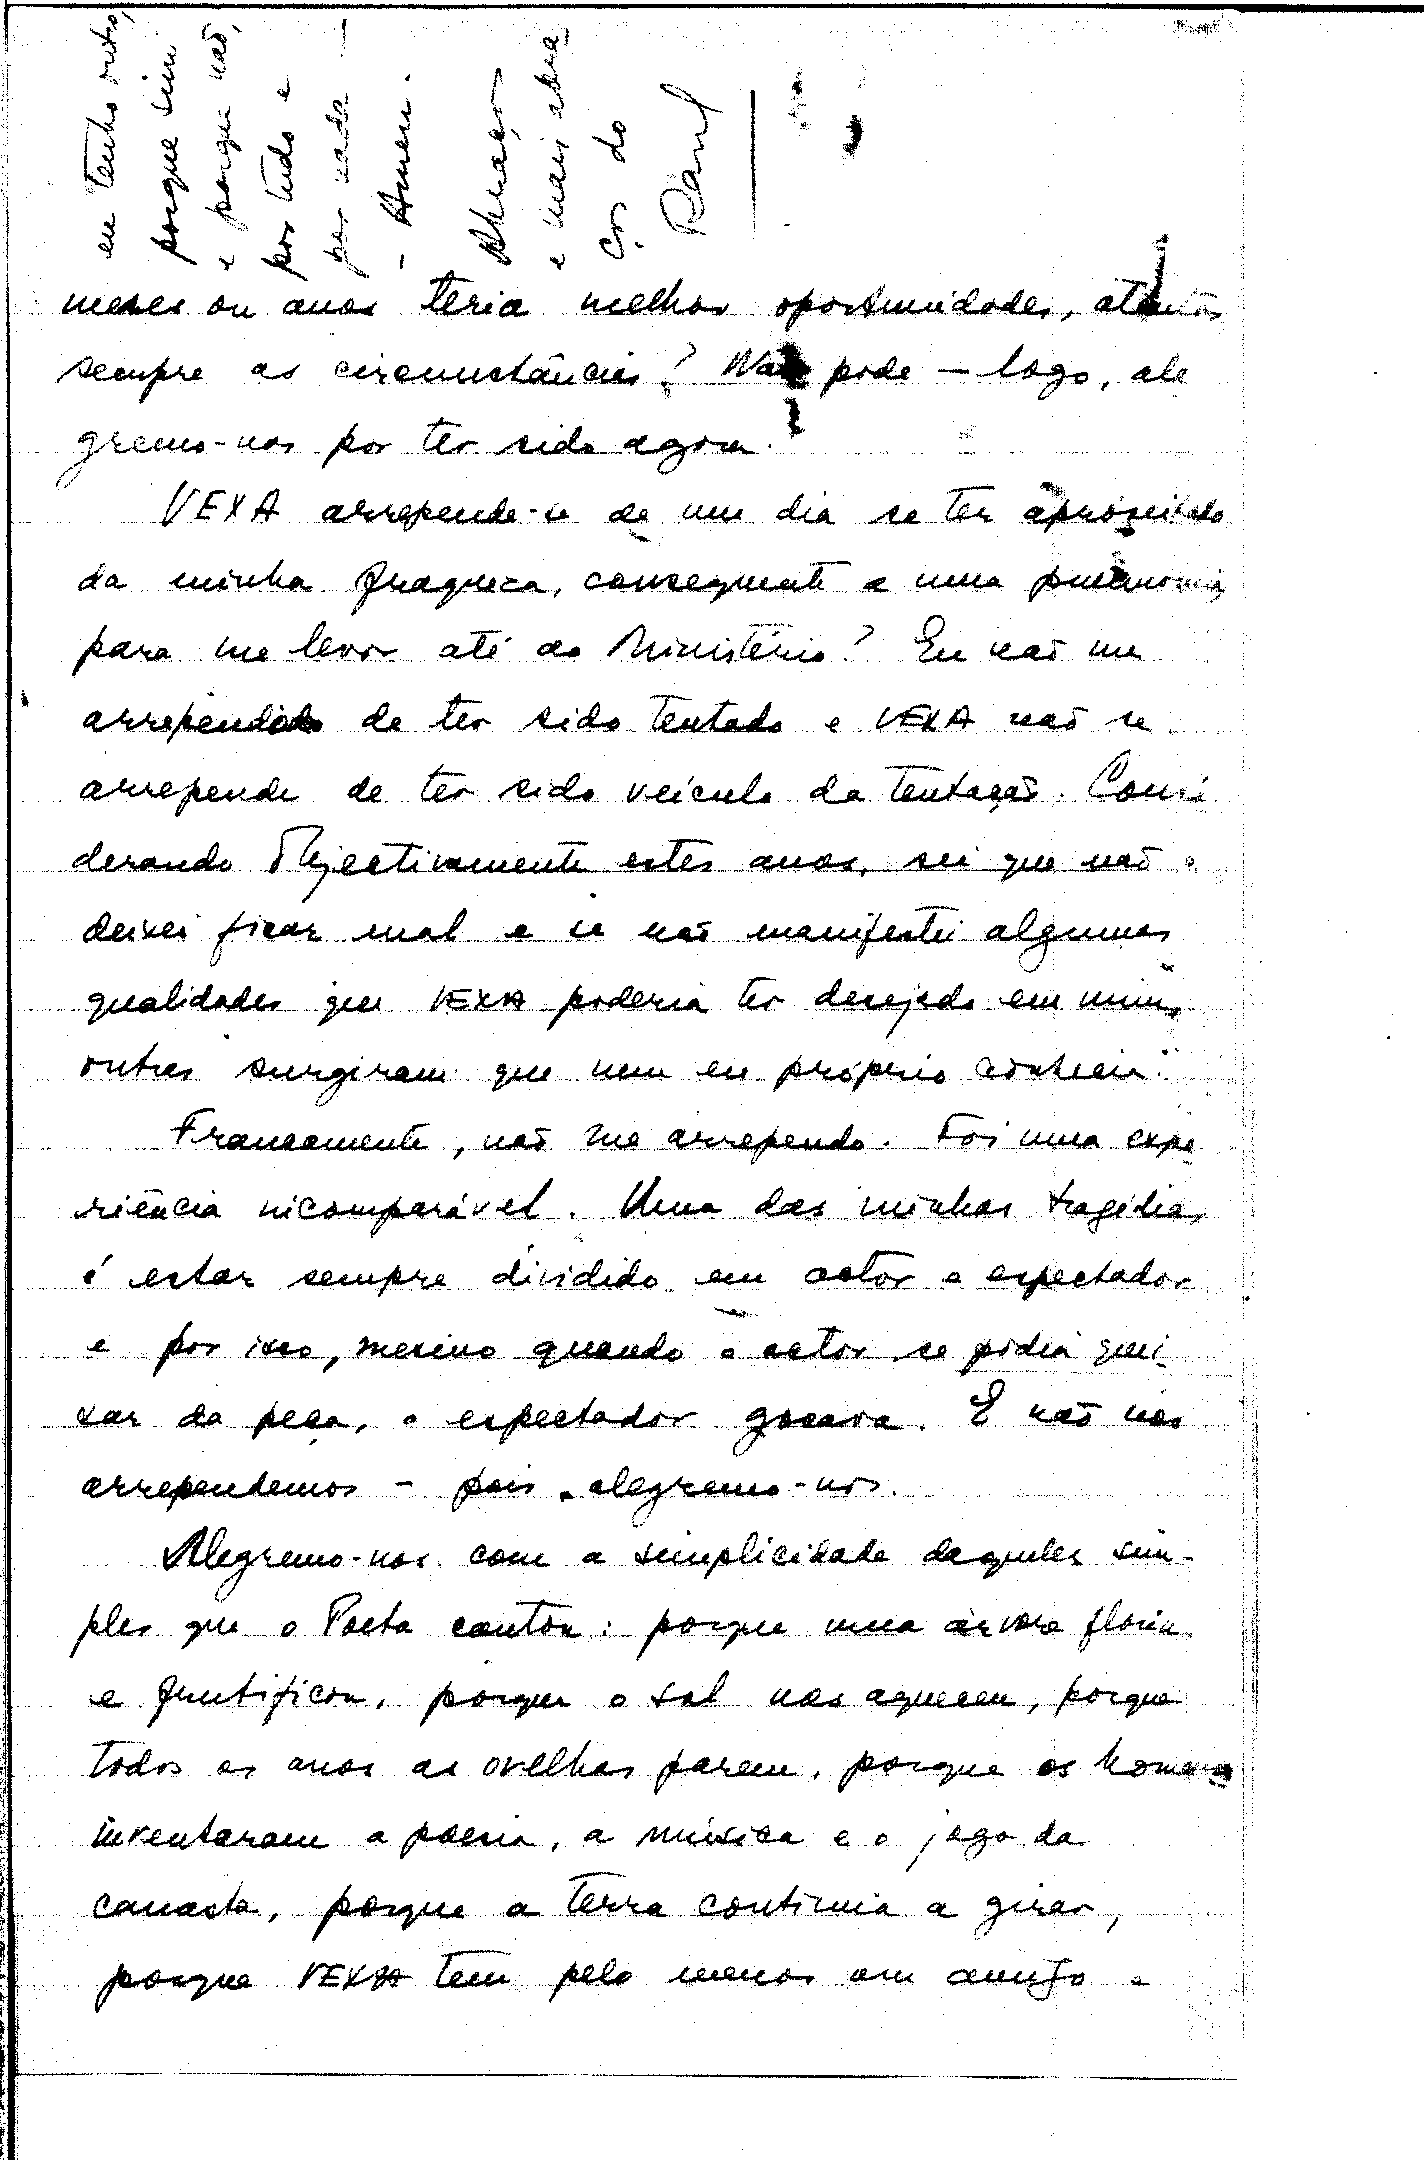 meses ou anos teria melhor oportunidades, atentas
sempre as circunstâncias? Não pode — logo, ale
gremo-nos por ter sido agora.
VEXA arrepende-se de um dia se ter aproveitado
da minha fraqueza, consequente a uma pneumonia,
para me levar até ao Ministério? Eu não me
arrependido de ter sido tentado e VEXA não se
arrepende de ter sido veículo da tentação. Consi
derando objectivamente estes anos, sei que não o
deixei ficar mal e se não manifestei algumas
qualidades que VEXA poderia ter desejado em mim,
outras surgiram que nem eu próprio conhecia.
Francamente, não me arrependo. Foi uma expe
riência incomparável. Uma das minhas tragédias
é estar sempre dividido em actor e espectador
e por isso, mesmo quando o actor se podia quei-
xar da peça, o espectador gozava. E não nos
arrependemos - pois alegremo-nos.
Alegremo-nos com a simplicidade daqueles sim-
ples que o Poeta cantou: porque uma árvore floriu
e frutificou, porque o sol nos aqueceu, porque
todos os anos as ovelhas parem, porque os homens
inventaram a poesia, a música e o jogo da
canasta, porque a terra continua a girar,
porque VEXA tem pelo menos um amigo e
eu tenho outro,
porque sim
e porque não,
por tudo e
por nada —
- Amen.
Abraços
e mais abra
ços do
Raul